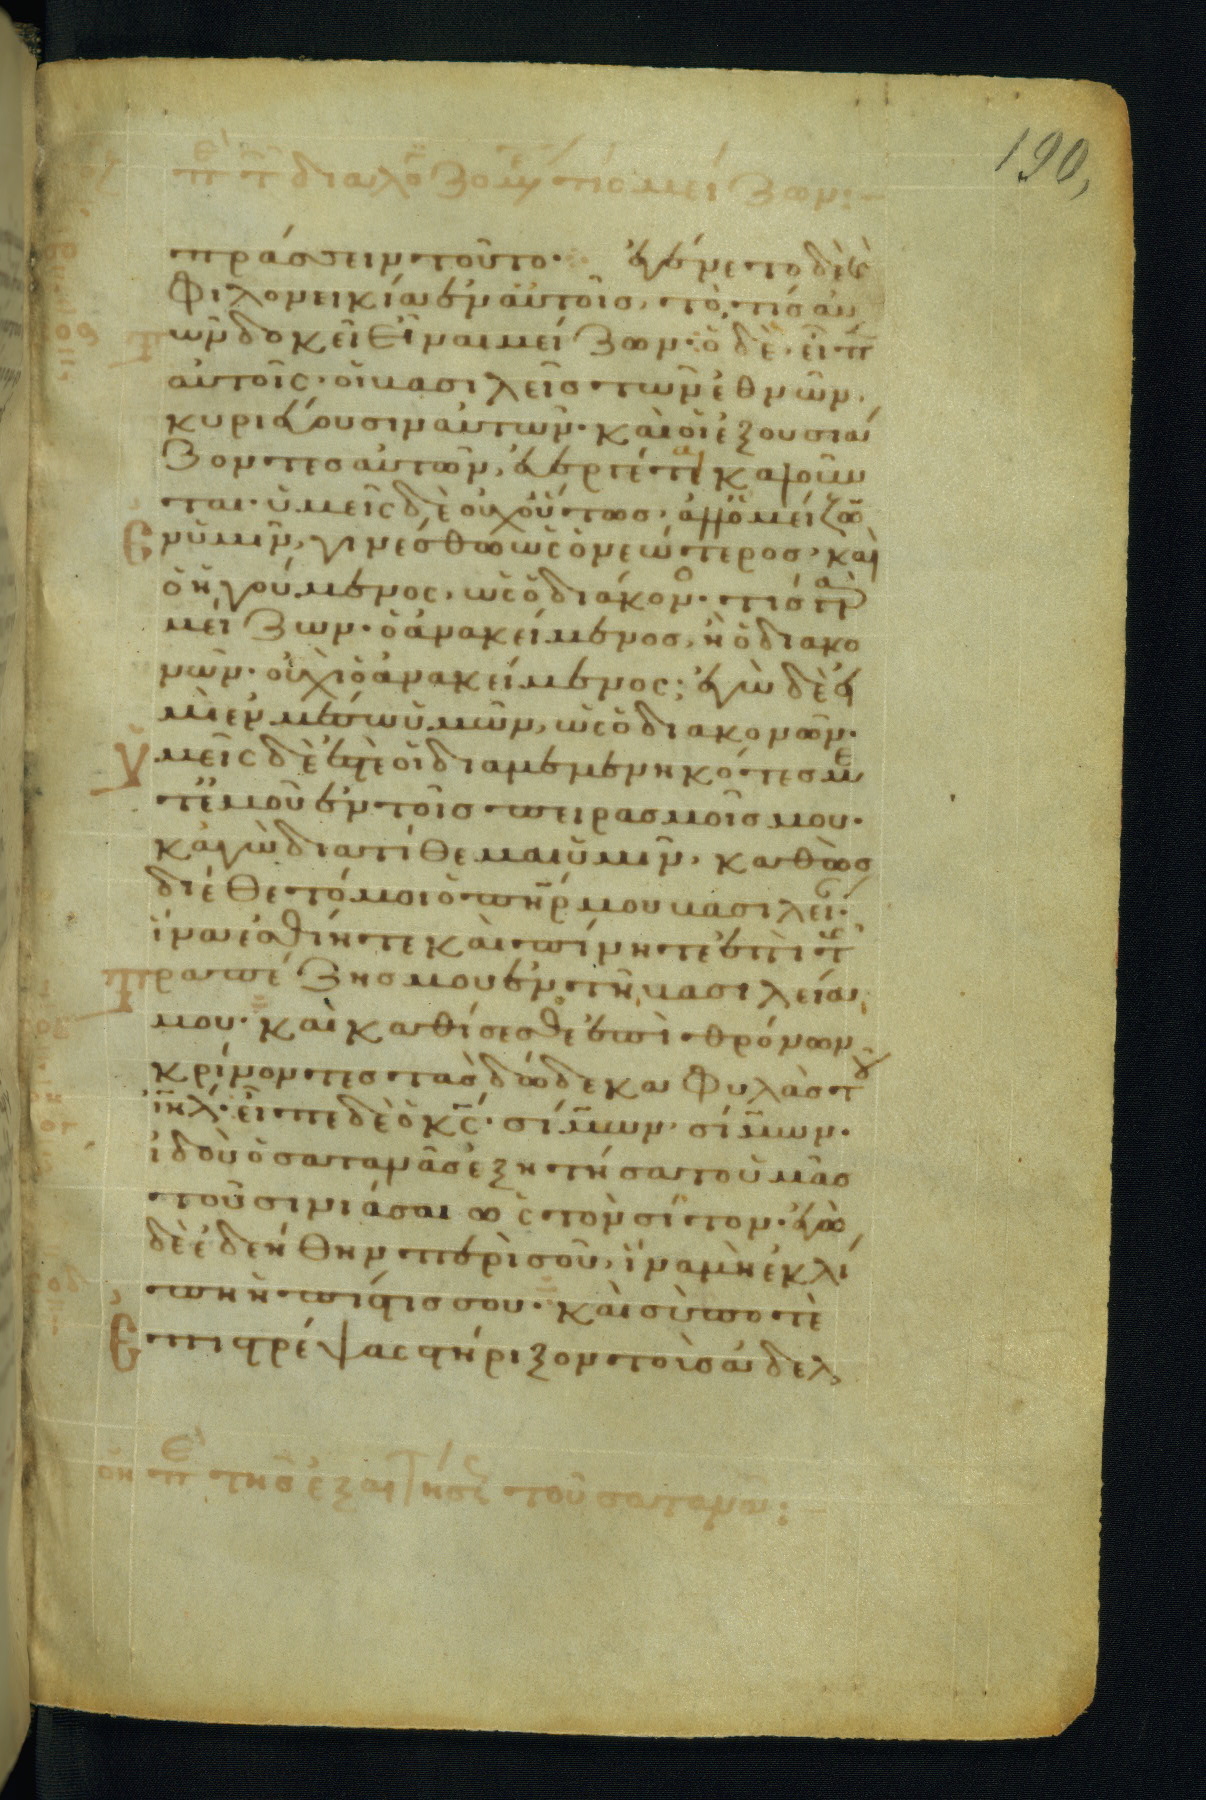 190,
πράσσειν τοῦτο· ἐγένετο δὲ
φιλονεικία ἐν αὐτοῖς, τὸ, τίς αὐ
τῶν δοκεῖ εἶναι μείζων· ὁ δὲ, εἶπ
αὐτοῖς· οἱ βασιλεῖς τῶν ἐθνῶν,
κυριεύουσιν αὐτῶν· καὶ οἱ ἐξουσιά
ζοντες αὐτῶν, εὐεργέται καλοῦν
ται· ὑμεῖς δὲ οὐχ οὕτως, ἀλλ ὁ μείζω
Εν ὑμῖν, γινέσθω ὡς ὁ νεώτερος, καὶ
ὁ ἡγούμενος, ὡς ὁ διάκον· τίς γὰρ
μείζων· ὁ ἀνακείμενος, ἢ ὁ διακο
νῶν· οὐχὶ ὁ ἀνακείμενος; ἐγὼ δὲ εἰ
μὶ ἐν μέσω ὑμῶν, ὡς ὁ διακονῶν·
Ὑμεῖς δὲ ἐστὲ οἱ διαμεμενηκότες με
τ ἐμοῦ ἐν τοῖς πειρασμοῖς μου·
κἀγὼ διατίθεμαι ὑμῖν, καθὼς
διέθετό μοι ὁ πηρ μου βασιλεί·
ἵνα ἐσθίητε καὶ πίνητε ἐπὶ τ
Τραπέζης μου ἐν τῆ βασιλεία
μου· καὶ καθίσεσθε ἐπὶ θρόνων
κρίνοντες τὰς δώδεκα φυλὰς τοῦ
ιηλ· εἶπε δὲ ὁ κς· σίμων, σίμων·
ἰδοὺ ὁ σατανᾶς ἐξητήσατο ὑμᾶς
τοῦ σινιάσαι ὡς τὸν σῖτον· ἐγὼ
δὲ ἐδεήθην περὶ σοῦ, ἵνα μὴ ἐκλί
πη ἡ πίστις σου· καὶ σύ ποτὲ
Ἐπιστρέψας στήριξον τοὺς ἀδελ
οη πε τῆς ἐξαιτήσε τοῦ σατανᾶ:–